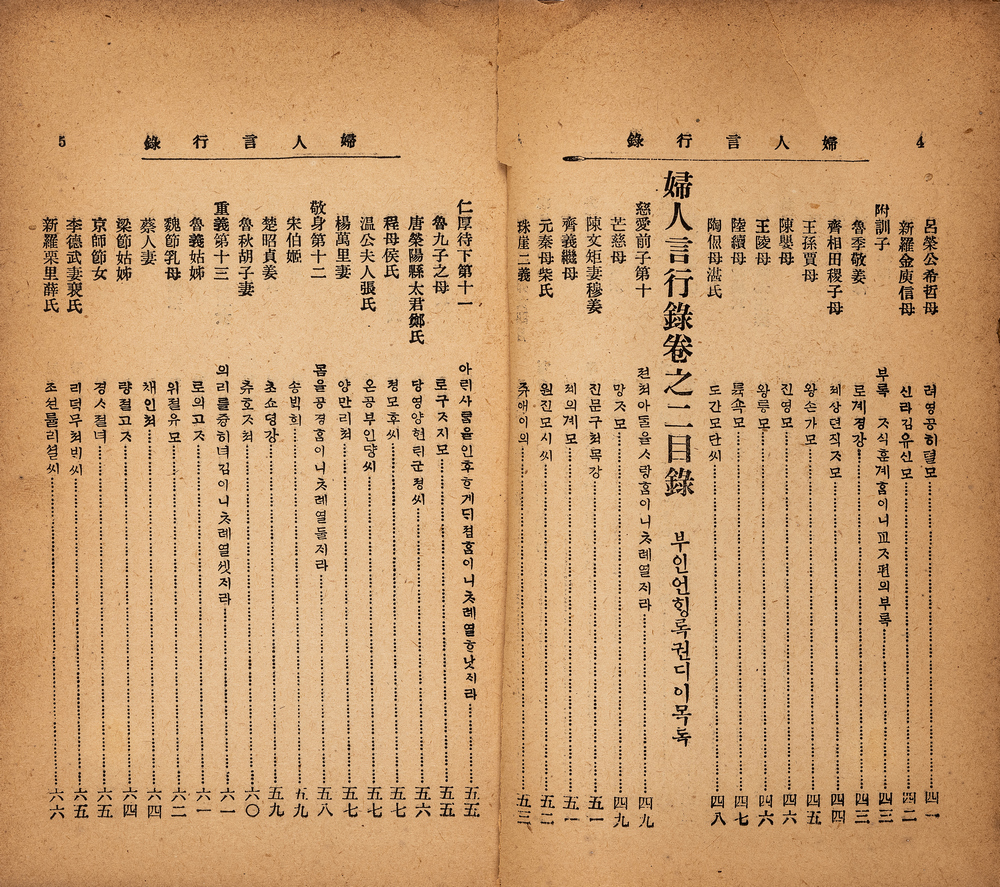 4 婦人言行錄
呂榮公希哲母 려영공희텰모 四一
新羅金庾信母 신라김유신모 四二
附訓子 부록 ᄌᆞ식훈계홈이니 교ᄌᆞ편의부록 四三
魯季敬姜 로계경강 四三
齊相田稷子母 졔상뎐직ᄌᆞ모 四四
王孫賈母 왕손가모 四五
陳嬰母 진영모 四六
王陵母 왕릉모 四六
陸續母 륙쇽모 四七
陶侃母湛氏 도간모단씨 四八
婦人言行錄卷之二目錄 부인언ᄒᆡᆼ록권디이목록
慈愛前子第十 젼쳐아ᄃᆞᆯ을ᄉᆞ랑홈이니ᄎᆞ례열ᄌᆡ라 四九
芒慈母 망ᄌᆞ모 四九
陳文矩妻穆姜 진문구쳐목강 五一
齊義繼母 졔의계모 五一
元秦母柴氏 원진모시씨 五二
珠崖二義 쥬애이의 五三
婦人言行錄 5
仁厚待下第十一 아ᄅᆡ사ᄅᆞᆷ을인후ᄒᆞ게ᄃᆡ졉홈이니ᄎᆞ례열ᄒᆞ낫ᄌᆡ라 五五
魯九子之母 로구ᄌᆞ지모 五五
唐榮陽縣太君鄭氏 당영양현ᄐᆡ군졍씨 五六
程母侯氏 졍모후씨 五七
溫公夫人張氏 온공부인댱씨 五七
楊萬里妻 양만리쳐 五七
敬身第十二 몸을공경홈이니ᄎᆞ례열둘ᄌᆡ라 五八
朱伯姬 송ᄇᆡᆨ희 五九
楚昭貞姜 초쇼졍강 五九
魯秋胡子妻 츄호ᄌᆞ쳐 六〇
重義第十三 의리를즁히녀김이니ᄎᆞ례열셋ᄌᆡ라 六一
魯義姑姊 로의고ᄌᆞ 六一
魏節乳母 위졀유모 六二
蔡人妻 채인쳐 六四
梁節姑姊 량졀고ᄌᆞ 六四
京師節女 경ᄉᆞ졀녀 六五
李德武妻裵氏 리덕무쳐ᄇᆡ씨 六五
新羅栗里薛氏 六六